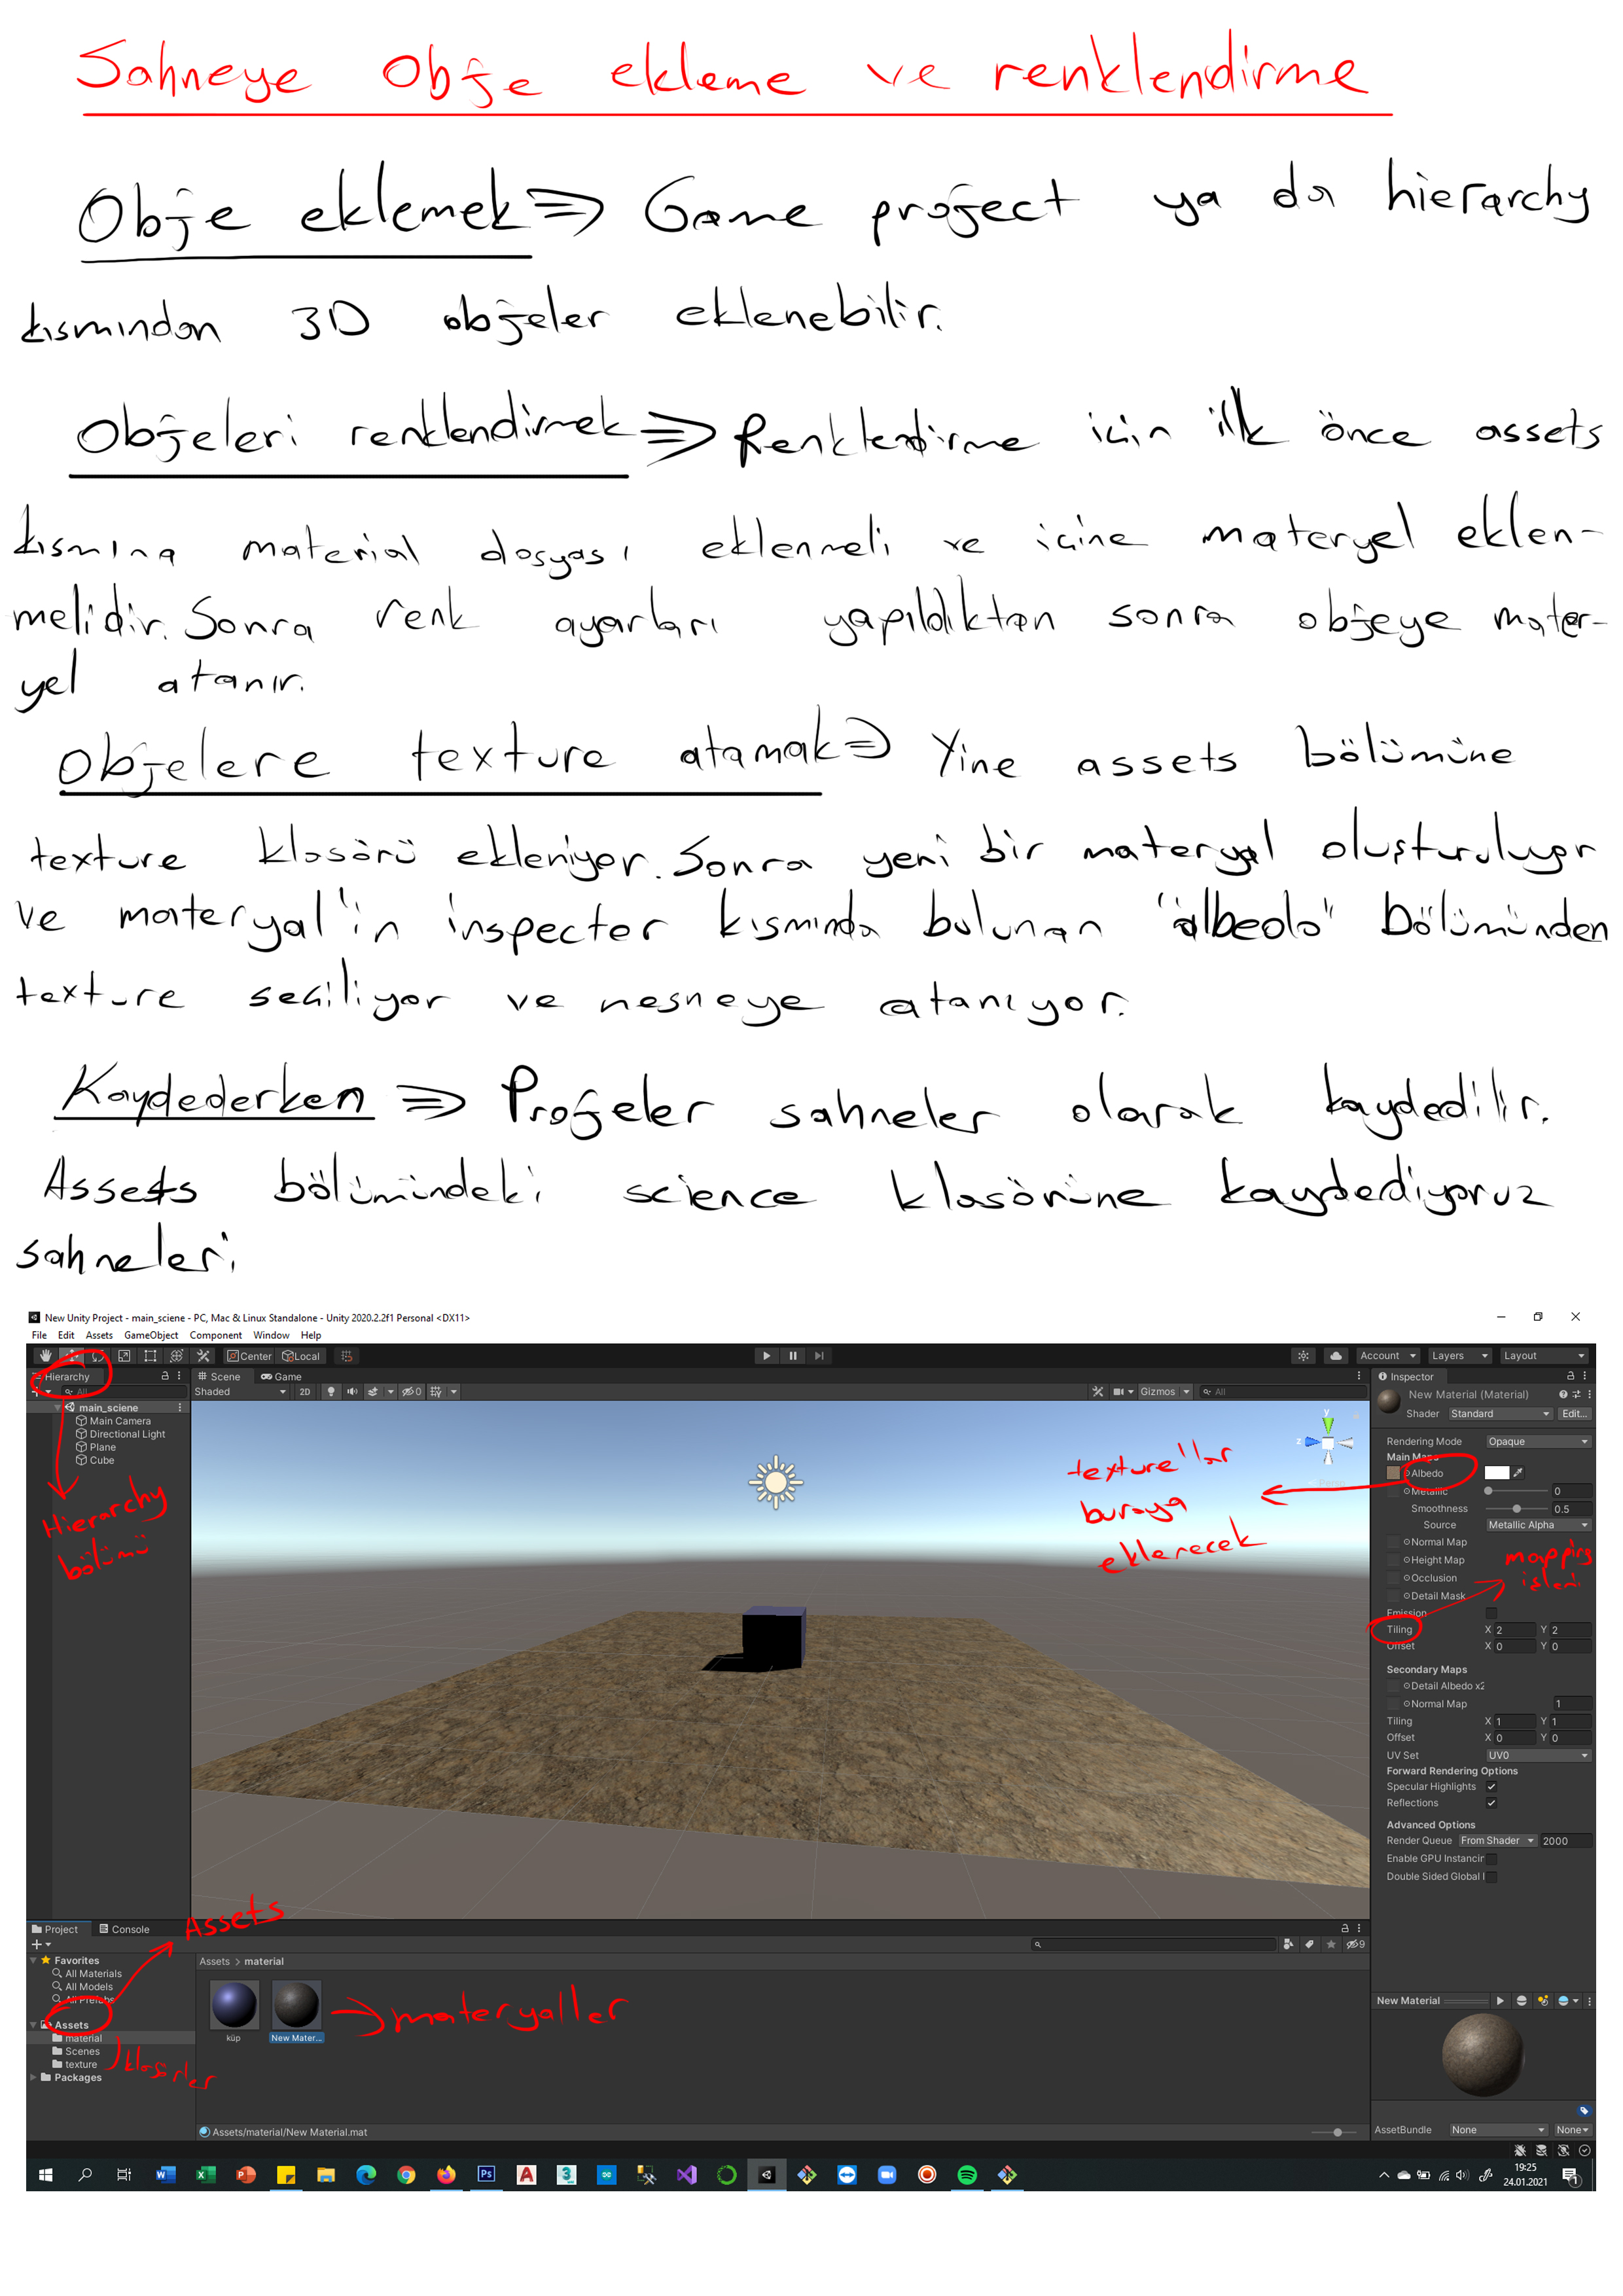 Sahneye Obje ekleme ve renklendirme
Obje eklemek => Game project ya da hierarchy
kısmından 3D objeler eklenebilir.
Objeleri renklendirmek => Renklendirme için ilk önce assets
kısmına material dosyası eklenmeli ve içine materyel eklen-
melidir. Sonra renk ayarları yapıldıktan sonra objeye mater-
yel atanır.
Objelere texture atamak => Yine assets bölümüne
texture klasörü ekleniyor. Sonra yeni bir materyal oluşturuluyor
ve materyal'in inspector kısmında bulunan "albedo" bölümünden
texture seçiliyor ve nesneye atanıyor.
Kaydederken => Projeler sahneler olarak kaydedilir.
Assets bölümündeki science klasörüne kaydediyoruz
sahneleri
New Unity Project - main_sciene - PC, Mac & Linux Standalone - Unity 2020.2.2f1 Personal <DX11>
File Edit Assets GameObject Component Window Help
Center Local Account Layers Layout
Hierarchy
All
main_sciene
Main Camera
Directional Light
Plane
Cube
Hierarchy
bölümü
Scene Game
Shaded 2D 0 Gizmos All
y
z
Persp
texture'lar
buraya
eklenecek
Inspector
New Material (Material)
Shader Standard Edit...
Rendering Mode Opaque
Main Maps
Albedo
Metallic 0
Smoothness 0.5
Source Metallic Alpha
Normal Map
Height Map
Occlusion
Detail Mask
mapping
işlemi
Emission
Tiling X 2 Y 2
Offset X 0 Y 0
Secondary Maps
Detail Albedo x2
Normal Map 1
Tiling X 1 Y 1
Offset X 0 Y 0
UV Set UV0
Forward Rendering Options
Specular Highlights
Reflections
Advanced Options
Render Queue From Shader 2000
Enable GPU Instancin
Double Sided Global I
Assets
Project Console
9
Favorites
All Materials
All Models
All Prefabs
Assets
material
Scenes
texture
Packages
klasörler
Assets > material
küp
New Mater...
materyaller
Assets/material/New Material.mat
New Material
AssetBundle None None
19:25
24.01.2021
1